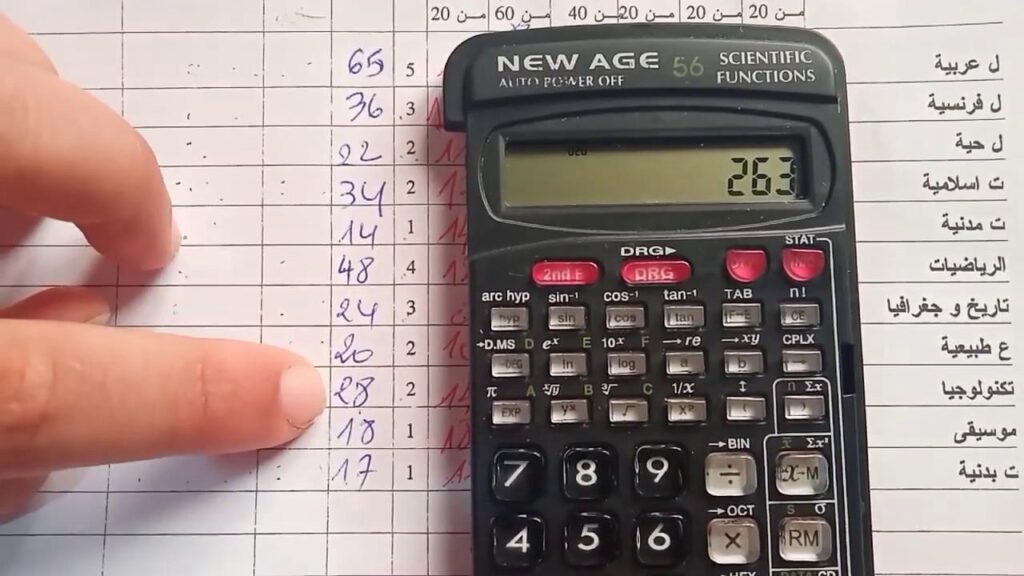 من 20 من 60 من 40 من 20 من 20 من 20
ل عربية 5 65
ل فرنسية 3 36
ل حية 2 22
ت اسلامية 2 34
ت مدنية 1 14
الرياضيات 4 48
تاريخ و جغرافيا 3 24
ع طبيعية 2 20
تكنولوجيا 2 28
موسيقى 1 18
ت بدنية 1 17
NEW AGE 56 SCIENTIFIC
AUTO POWER OFF FUNCTIONS
DEG
263
DRG► STAT
2nd F DRG
arc hyp sin⁻¹ cos⁻¹ tan⁻¹ TAB n!
hyp sin cos tan F↔E CE
→D.MS D eˣ E 10ˣ F →re →xy CPLX
DEG ln log a b →
π A ˣ√y B ³√ C 1/x ↕ n Σx
EXP yˣ √ x² ( )
→BIN x̄ Σx²
7 8 9 ÷ x→M
→OCT S σ
4 5 6 × RM
→HEX DATA CD